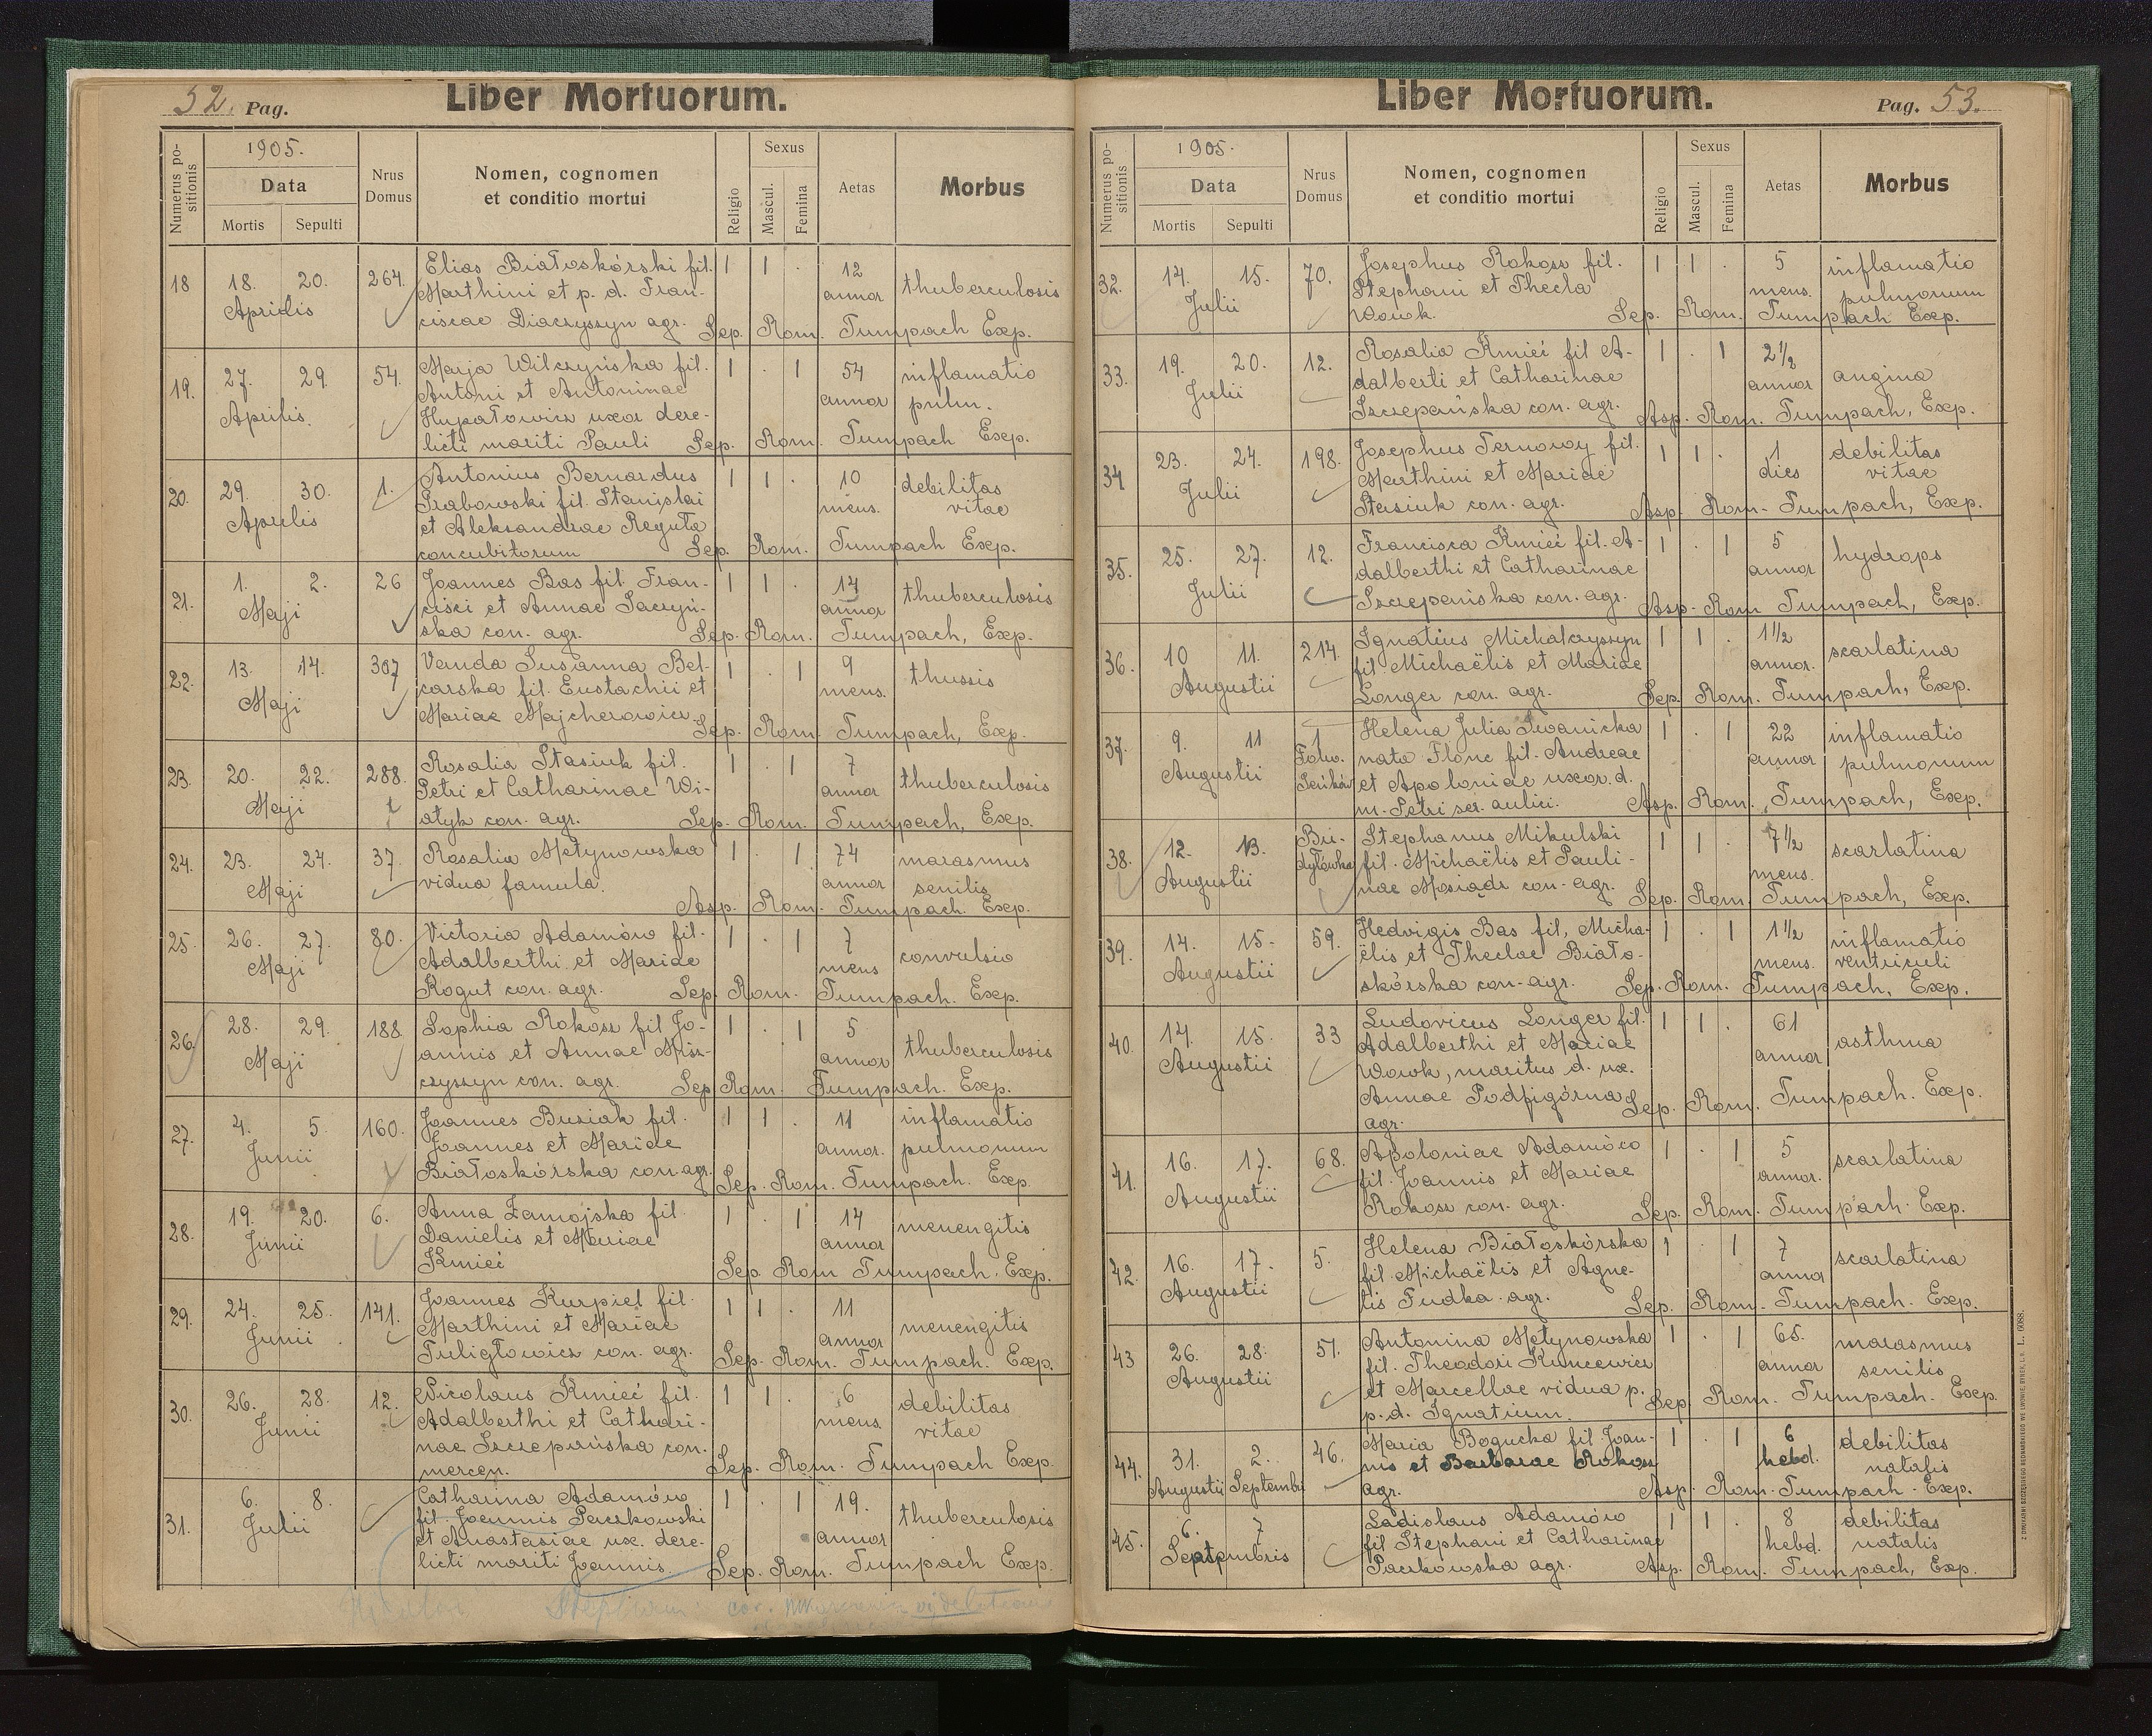 52. Pag.
Liber Mortuorum.
Numerus positionis
1905.
Data
Mortis
Sepulti
Nrus Domus
Nomen, cognomen
et conditio mortui
Religio
Sexus
Mascul.
Femina
Aetas
Morbus
18 18. 20. 264. Elias Białoskórski fil. 1 1 . 12
Aprilis Marthini et p. d. Fran- annor thuberculosis
ciscae Diaczyszyn agr. Sep. Rom. Tumpach Exp.
19. 27. 29. 54. Marja Wilczyńska fil. 1 . 1 54 inflamatio
Aprilis. Antoni et Antoninae annor pulm.
Hypatowicz uxor dere-
licti mariti Pauli Sep. Rom. Tumpach Exp.
20. 29. 30. 1. Antonius Bernardus 1 1 . 10 debilitas
Aprilis Grabowski fil. Stanislai mens. vitae
et Aleksandrae Reguła
concubitorum Sep. Rom. Tumpach Exp.
21. 1. 2. 26 Joannes Bas fil. Fran- 1 1 . 14 thuberculosis
Maji cisci et Annae Saczyń- annor
ska con. agr. Sep. Rom. Tumpach, Exp.
22. 13. 14. 307 Vanda Susanna Bel- 1 . 1 9 thussis
Maji carska fil. Eustachii et mens.
Mariae Majcherowicz Sep. Rom. Tumpach, Exp.
23. 20. 22. 288. Rosalia Stasiuk fil. 1 . 1 7 thuberculosis
Maji Petri et Catharinae Wi- annor
atyk con. agr. Sep. Rom. Tumpach, Exp.
24. 23. 24. 37. Rosalia Metynowska 1 . 1 74 marasmus
Maji vidua famula. annor senilis
Asp. Rom. Tumpach. Exp.
25. 26. 27. 80. Victoria Adamów fil. 1 . 1 7 convulsio
Maji Adalberthi et Mariae mens
Kogut con. agr. Sep. Rom. Tumpach. Exp.
26. 28. 29. 188. Sophia Rokosz fil Jo- 1 . 1 5
Maji annis et Annae Misz- annor thuberculosis
czyszyn con. agr. Sep Rom. Tumpach. Exp.
27. 4. 5. 160. Joannes Busiak fil. 1 1 . 11 inflamatio
Junii Joannes et Mariae annor. pulmonum
Białoskórska con. agr. Sep. Rom. Tumpach. Exp.
28. 19. 20. 6. Anna Zamojska fil. 1 . 1 14 menengitis
Junii Danielis et Mariae annor
Kmieć Sep. Rom Tumpach. Exp.
29. 24. 25. 141. Joannes Kurpiel fil. 1 1 . 11 menengitis
Junii Marthini et Mariae annor
Tuligłowicz con. agr. Sep. Rom. Tumpach. Exp.
30. 26. 28. 12. Nicolaus Kmieć fil. 1 1 . 6 debilitas
Junii Adalberthi et Cathari- mens. vitae
nae Szczepańska con.
mercen. Sep. Rom. Tumpach Exp.
31. 6. 8. Catharina Adamów 1 . 1 19. thuberculosis
Julii fil. Joannis Paczkowski annor
et Anastasiae ux. dere-
licti mariti Joannis. Sep. Rom. Tumpach Exp.
Liber Mortuorum.
Pag. 53.
Numerus positionis
1905.
Data
Mortis
Sepulti
Nrus Domus
Nomen, cognomen
et conditio mortui
Religio
Sexus
Mascul.
Femina
Aetas
Morbus
32. 14. 15. 70. Josephus Rokosz fil. 1 1 . 5 inflamatio
Julii Stephani et Thecla mens. pulmonum
Wowk. Sep. Rom. Tumpach Exp.
33. 19. 20. 12. Rosalia Kmieć fil A- 1 . 1 2 1/2 angina
Julii dalberti et Catharinae annor
Szczepańska con. agr. Asp. Rom. Tumpach, Exp.
34 23. 24. 198. Josephus Ternowy fil. 1 1 . 1 debilitas
Julii Marthini et Mariae dies vitae
Stasiuk con. agr. Asp. Rom. Tumpach, Exp.
35. 25. 27. 12. Francisca Kmieć fil. A- 1 . 1 5 hydrops
Julii dalberthi et Catharinae annor
Szczepańska con. agr. Asp. Rom Tumpach, Exp.
36. 10 11. 214. Ignatius Michalczyszyn 1 1 . 1 1/2 scarlatina
Augustii fil. Michaëlis et Mariae annor.
Longer con. agr. Sep. Rom. Tumpach, Exp.
37. 9. 11 1 Helena Julia Iwanicka 1 . 1 22 inflamatio
Augustii Folw. nata Flonc fil. Andreae annor pulmonum
et Apoloniae uxor. d.
m. Petri ser. aulici. Asp. Rom. Tumpach, Exp.
38. 12. 13. Bu- Stephanus Mikulski 1 1 . 7 1/2 scarlatina
Augustii dyłówka fil. Michaëlis et Pauli- mens.
nae Mosiądz con. agr. Sep. Rom. Tumpach, Exp.
39. 14. 15. 59. Hedvigis Bas fil, Micha- 1 . 1 1 1/2 inflamatio
Augustii ëlis et Theclae Biało- mens. ventriculi
skórska con. agr. Sep. Rom. Tumpach, Exp.
40. 14. 15. 33 Ludovicus Longer fil. 1 1 . 61 asthma
Augustii Adalberthi et Mariae annor
Wowk, maritus d. ux.
Annae Podfigórna Sep. Rom. Tumpach. Exp.
agr.
41. 16. 17. 68. Apoloniae Adamów 1 . 1 5 scarlatina
Augustii fil. Joannis et Mariae annor.
Rokosz con. agr. Sep. Rom. Tumpach. Exp.
42. 16. 17. 5. Helena Białoskórska 1 . 1 7 scarlatina
Augustii fil. Michaëlis et Agne- annor
tis Fudka agr. Sep. Rom. Tumpach. Exp.
43 26. 28. 51. Antonina Metynowska 1 . 1 65. marasmus
Augustii fil. Theodori Kuncewicz annor senilis
et Marcellae vidua p. Sep. Rom. Tumpach. Exp.
p. d. Ignatium.
44. 31. 2. 46. Maria Bogucka fil. Joan- 1 . 1 6 debilitas
Augustii Septembri nis et Barbarae Rokosz hebd. natalis
agr. Asp. Rom. Tumpach. Exp.
45. 6. 7 Ladislaus Adamów 1 1 . 8 debilitas
Septembris fil Stephani et Catharinae hebd. natalis
Paczkowska agr. Asp. Rom. Tumpach, Exp.